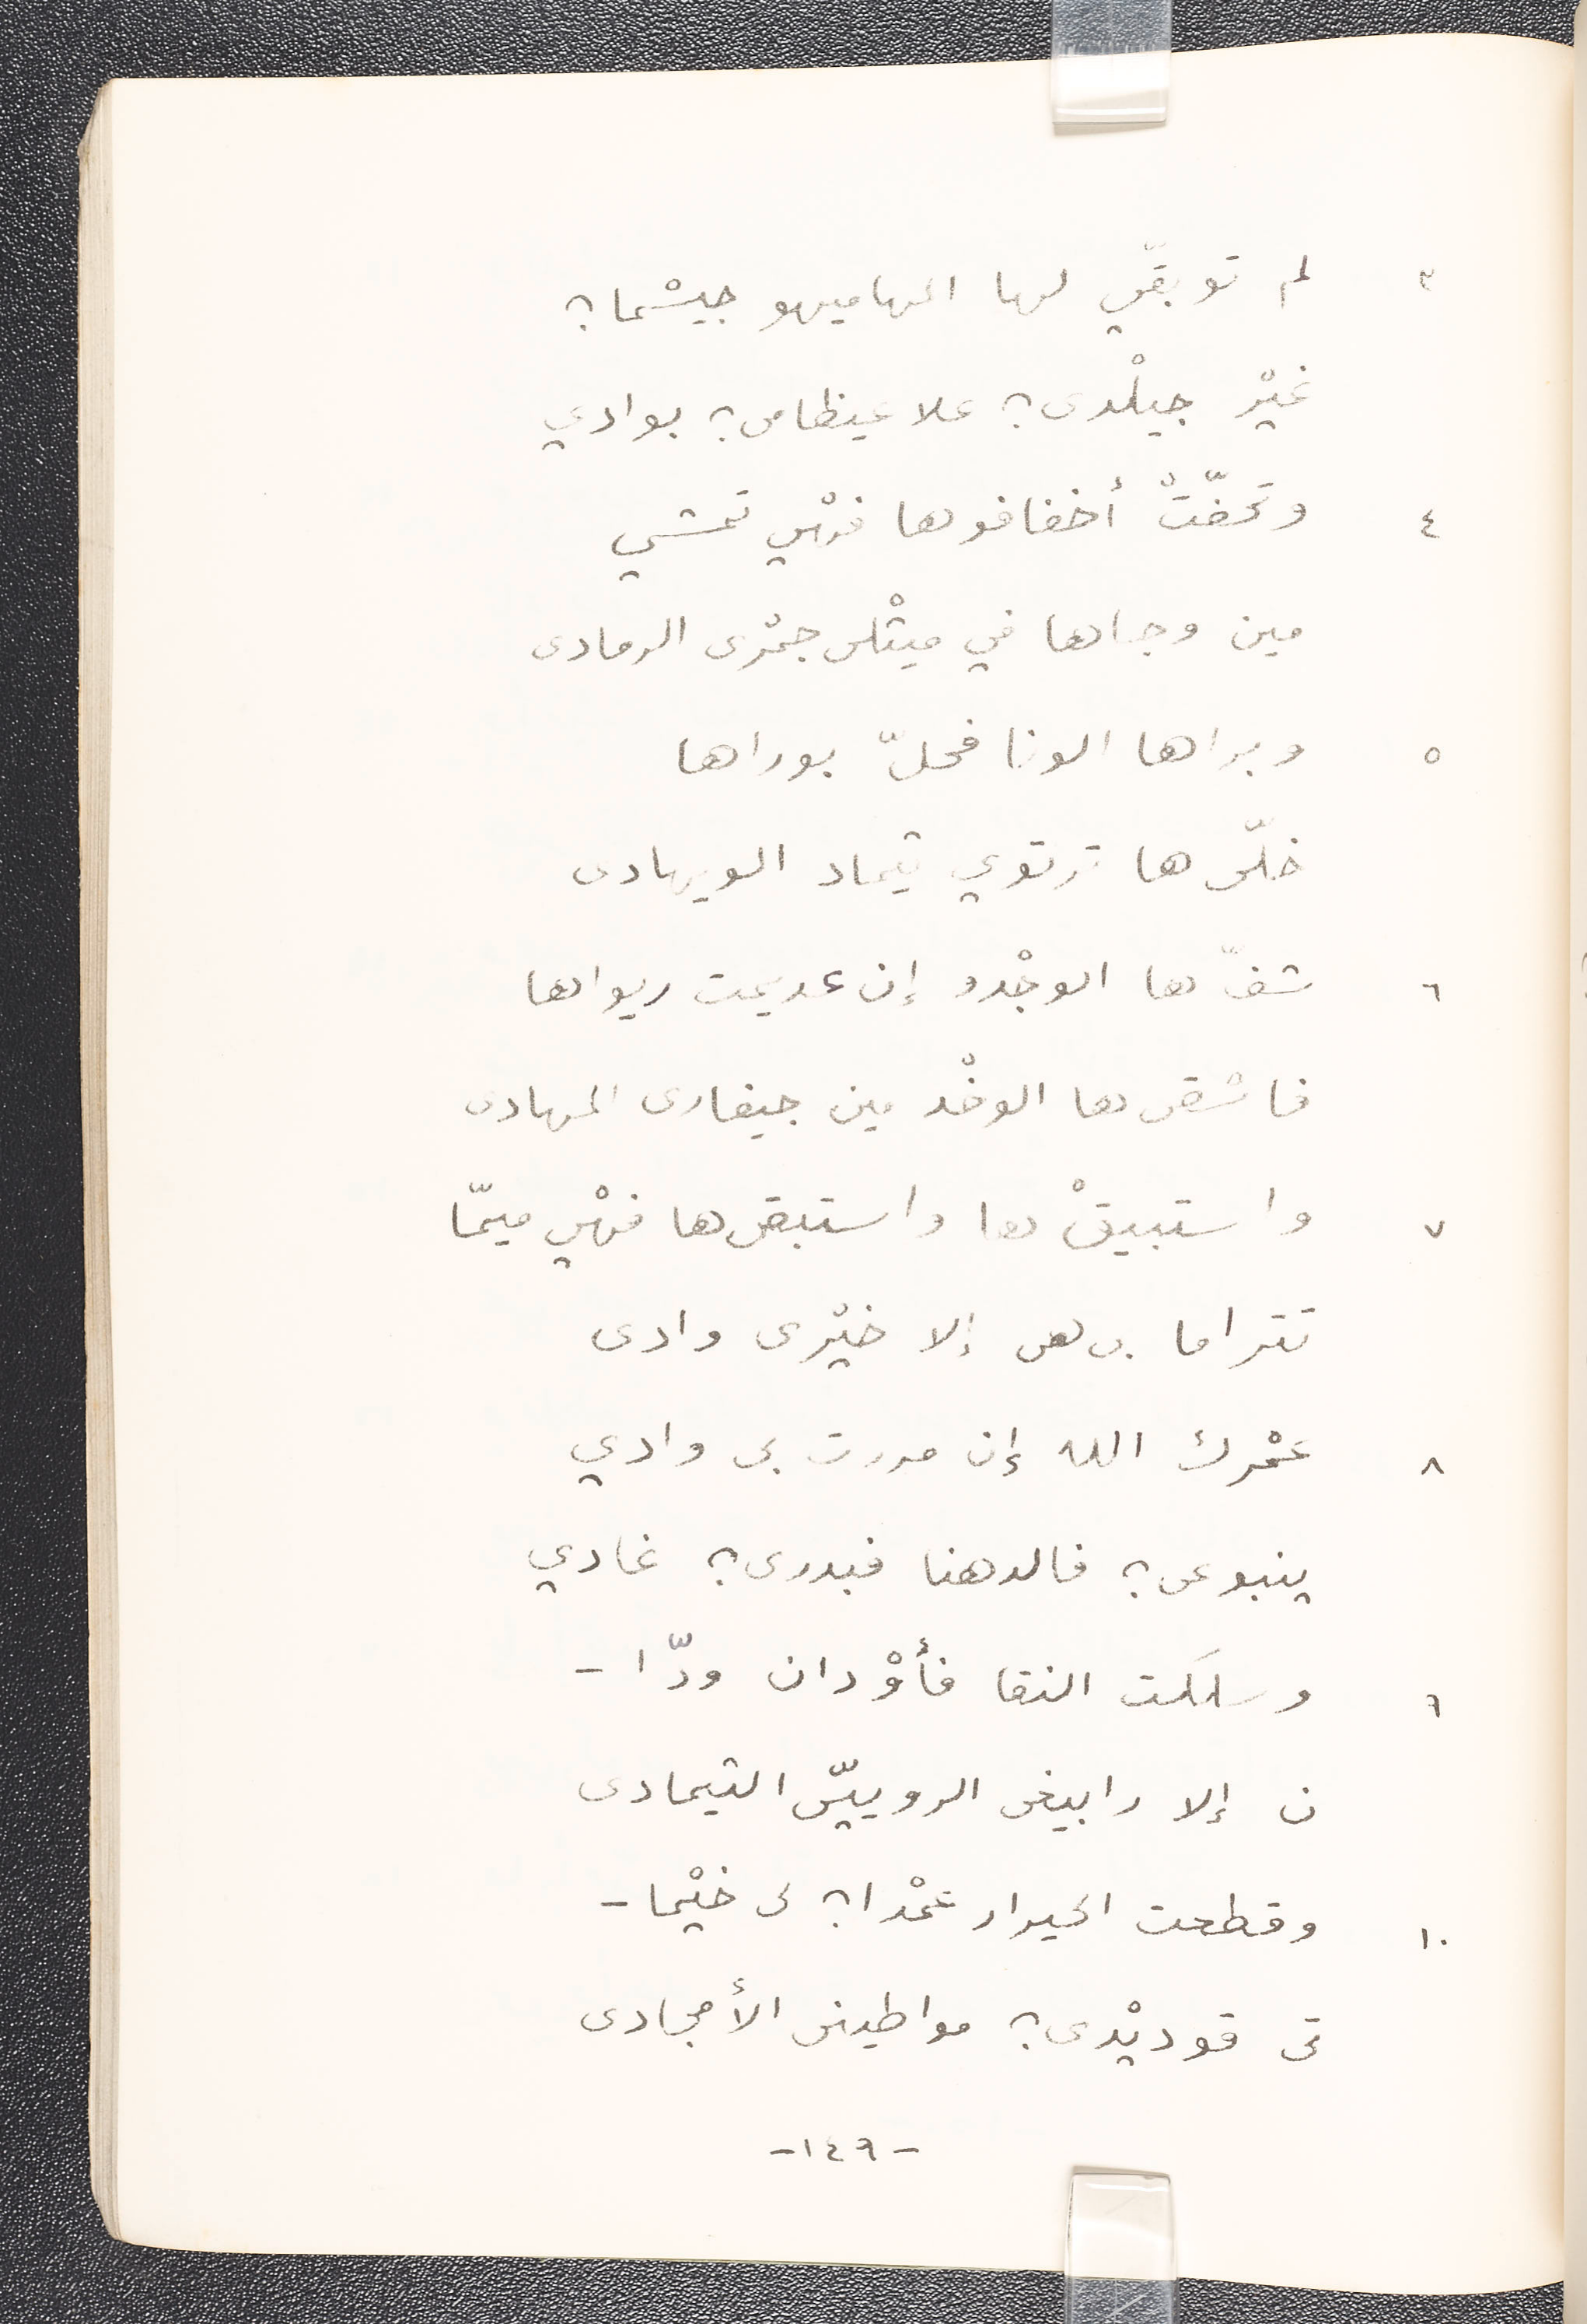 ٣ لم توبقّي لها المهاميهو جيسْما؟
غيْر جيلْدى؟ علا عيظامى؟ بوادي
٤ وتحفّتْ أخفافوها فهْي تمشي
مين وجاها في ميثْلى جمْرى الرمادى
٥ وبراها الونا فحلّ بوراها
خلّى ها ترتوي ثيماد الويهادى
٦ شفّ ها الوجْدو إن عديمت ريواها
فاسْقى ها الوخْد مين جيفارى المهادى
٧ واستبيقْ ها واستبقى ها فهْي ميمّا
تتراما بى هى إلا خيْرى وادى
٨ عمْرك الله إن مررت بى وادي
ينبوعى؟ فالدهنا فبدرى؟ غادي
٩ وسلَكت النقا فأوْدان ودّا -
ن إلا رابيغى الروييّى الثيمادى
١٠ وقطعت الحيرار عمْدا؟ لى خيْما -
تى قوديْدى؟ مواطينى الأمجادى
-١٤٩-